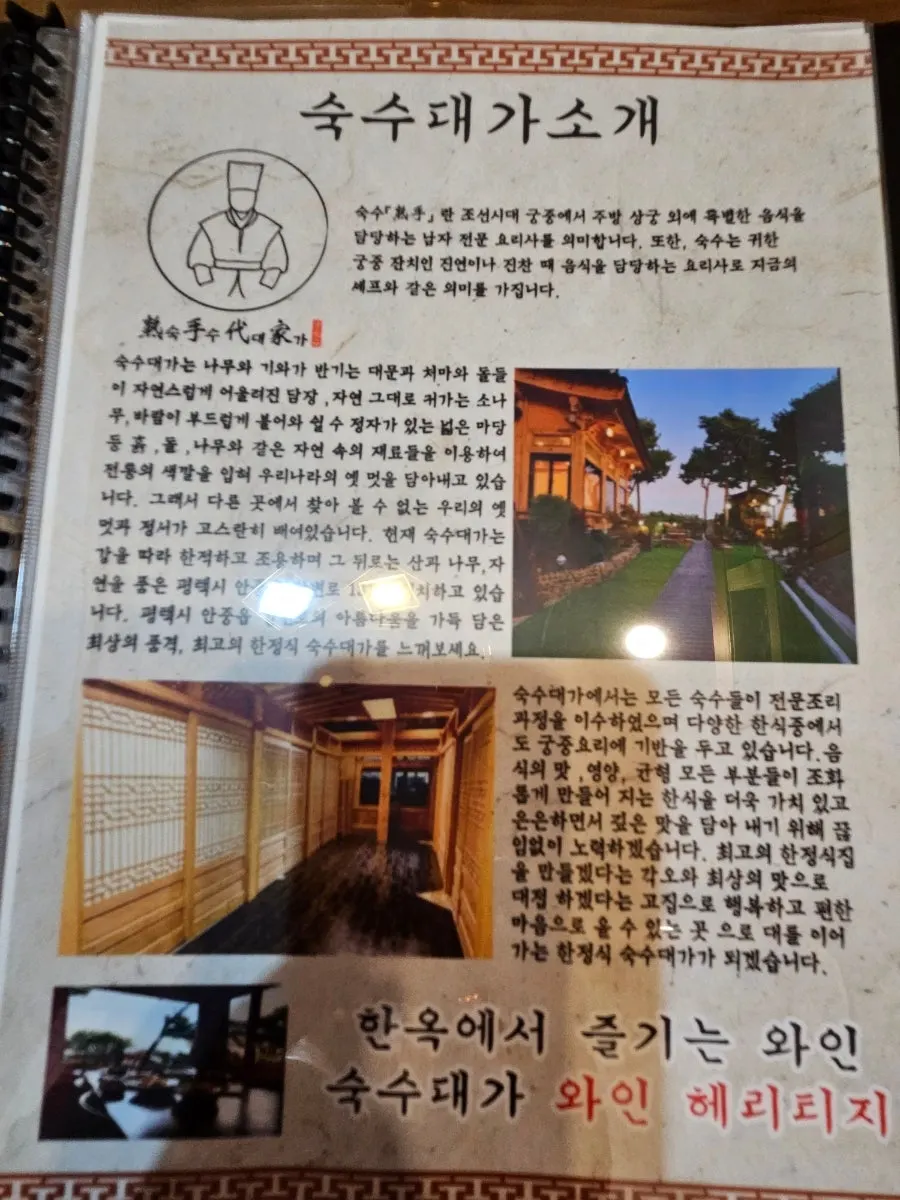 숙수대가소개
숙수「熟手」란 조선시대 궁중에서 주방 상궁 외에 특별한 음식을
담당하는 남자 전문 요리사를 의미합니다. 또한, 숙수는 귀한
궁중 잔치인 진연이나 진찬 때 음식을 담당하는 요리사로 지금의
셰프와 같은 의미를 가집니다.
熟숙手수代대家가
숙수대가는 나무와 기와가 반기는 대문과 처마와 돌들
이 자연스럽게 어울려진 담장 ,자연 그대로 커가는 소나
무,바람이 부드럽게 불어와 쉴 수 정자가 있는 넓은 마당
등 흙 ,돌 ,나무와 같은 자연 속의 재료들을 이용하여
전통의 색깔을 입혀 우리나라의 옛 멋을 담아내고 있습
니다. 그래서 다른 곳에서 찾아 볼 수 없는 우리의 옛
멋과 정서가 고스란히 배여있습니다. 현재 숙수대가는
강을 따라 한적하고 조용하며 그 뒤로는 산과 나무,자
연을 품은 평택시 하고 있습
니다. 평택시 안중읍 아름다움을 가득 담은
최상의 품격, 최고의 한정식 숙수대가를 느껴보세요.
숙수대가에서는 모든 숙수들이 전문조리
과정을 이수하였으며 다양한 한식중에서
도 궁중요리에 기반을 두고 있습니다.음
식의 맛 ,영양, 균형 모든 부분들이 조화
롭게 만들어 지는 한식을 더욱 가치 있고
은은하면서 깊은 맛을 담아 내기 위해 끊
임없이 노력하겠습니다. 최고의 한정식집
을 만들겠다는 각오와 최상의 맛으로
대접 하겠다는 고집으로 행복하고 편한
마음으로 올 수 있는 곳 으로 대를 이어
가는 한정식 숙수대가가 되겠습니다.
한옥에서 즐기는 와인
숙수대가 와인 헤리티지